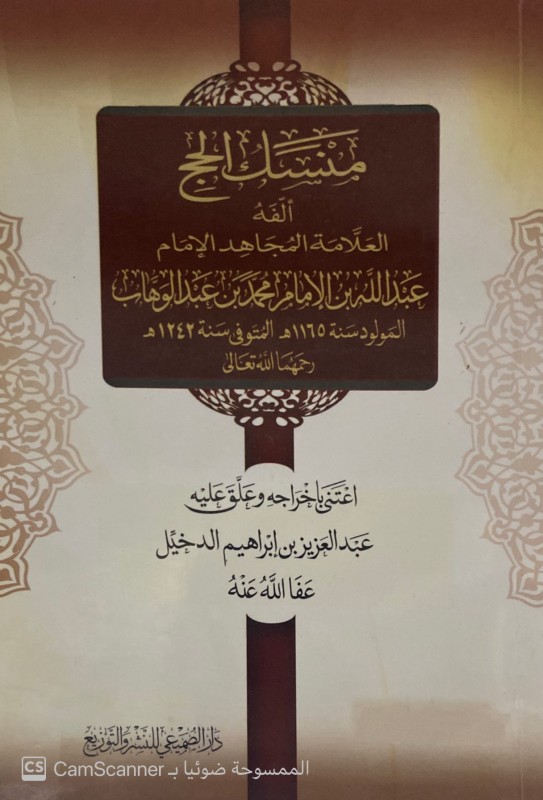 مَنْسَكُ الحَجِّ
ألّفَهُ
العَلَّامَة المُجَاهِد الإمَام
عَبْدُ اللَّه بن الإِمَام مُحَمَّد بْن عَبْد الوَهَاب
المَولُود سَنة ١١٦٥هـ المُتوَفى سَنة ١٢٤٢هـ
رحمَهُمَا اللَّهُ تَعَالى
اعْتَنىَ بإخْرَاجِهِ وَعَلَّقَ عَليْه
عَبْد العَزيز بن إِبْراهِيم الدخيّل
عَفَا اللَّهُ عَنْهُ
دَارُ الصُّمَيعِي لِلنَّشْرِ وَالتَّوزيع
CS CamScanner الممسوحة ضوئيا بـ